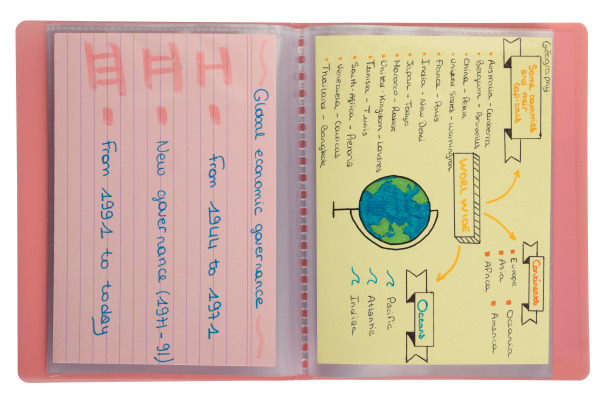 Geography
Some countries
and their
capitals
Australia - Canberra
Belgium - Bruxelles
China - Pekin
United States - Washington
France - Paris
India - New Delhi
Japan - Tokyo
Morocco - Rabat
United-Kingdom - Londres
Tunisia - Tunis
South-Africa - Pretoria
Venezuela - Caracas
Thailand - Bangkok
WORLWIDE
Continents
Europe
Oceania
Asia
America
Africa
Oceans
Pacific
Atlantic
Indian
Global economic governance
I
from 1944 to 1971
II
New governance (1971-91)
III
From 1991 to today